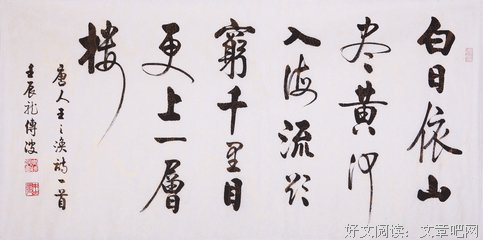 白日依山
尽黄河
入海流欲
窮千里目
更上一層
楼
唐人王之渙詩一首
壬辰龍傅波
好文阅读:文章吧网